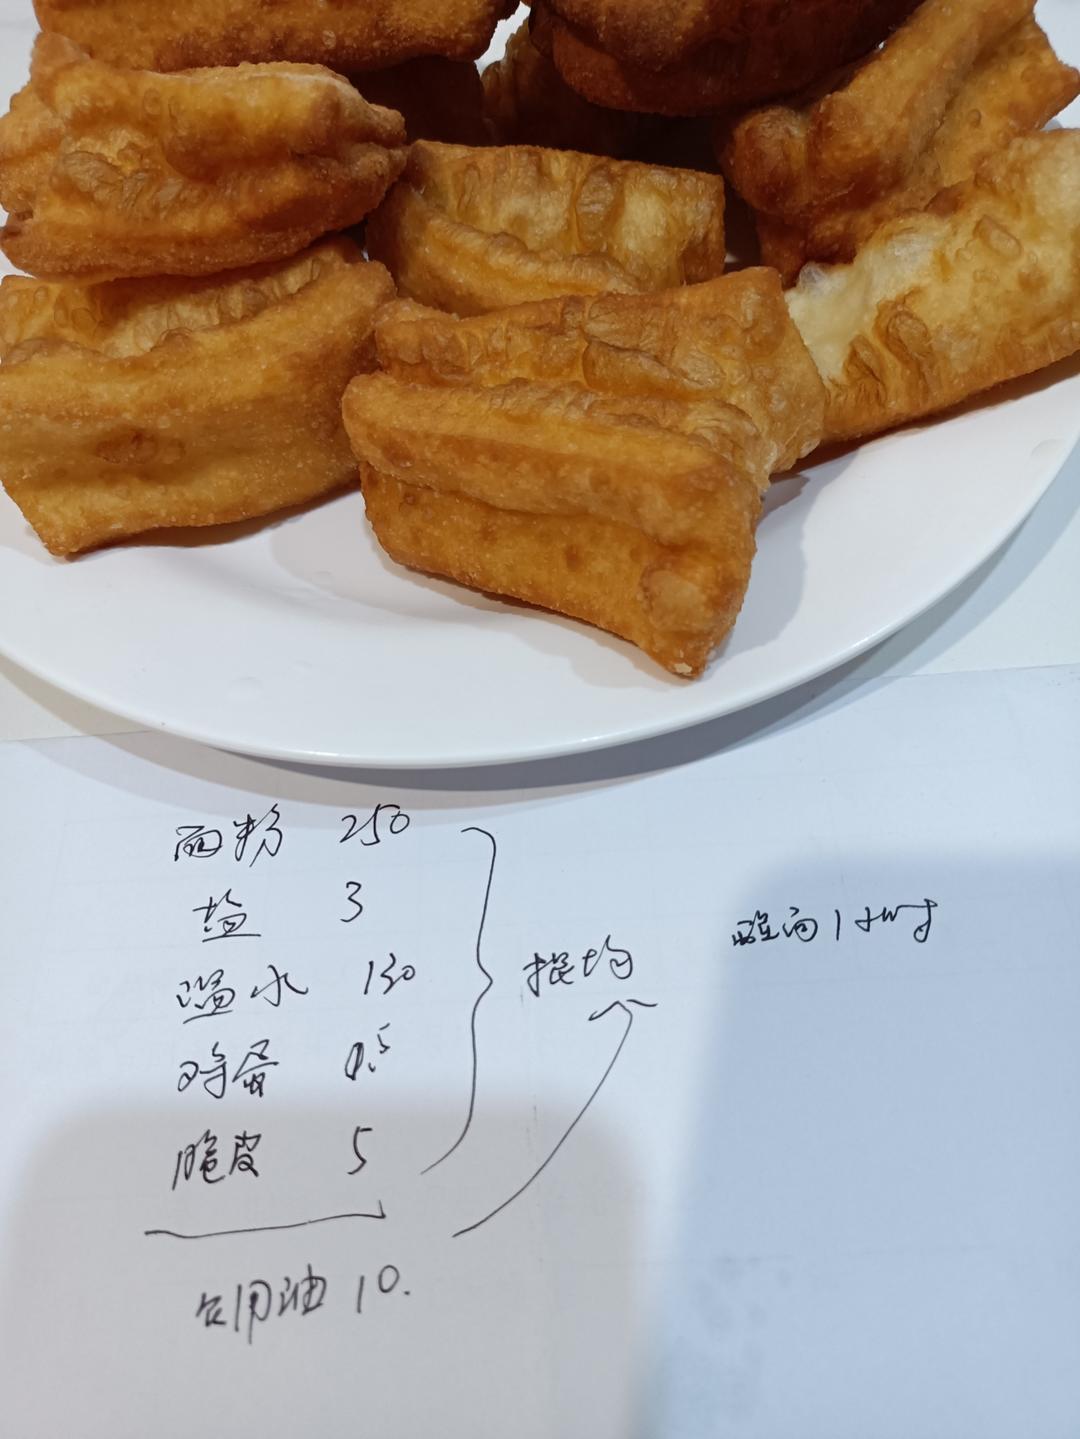 面粉 250
盐 3
温水 130
鸡蛋 0.5
脆皮 5
食用油 10.
揉均
醒面1小时